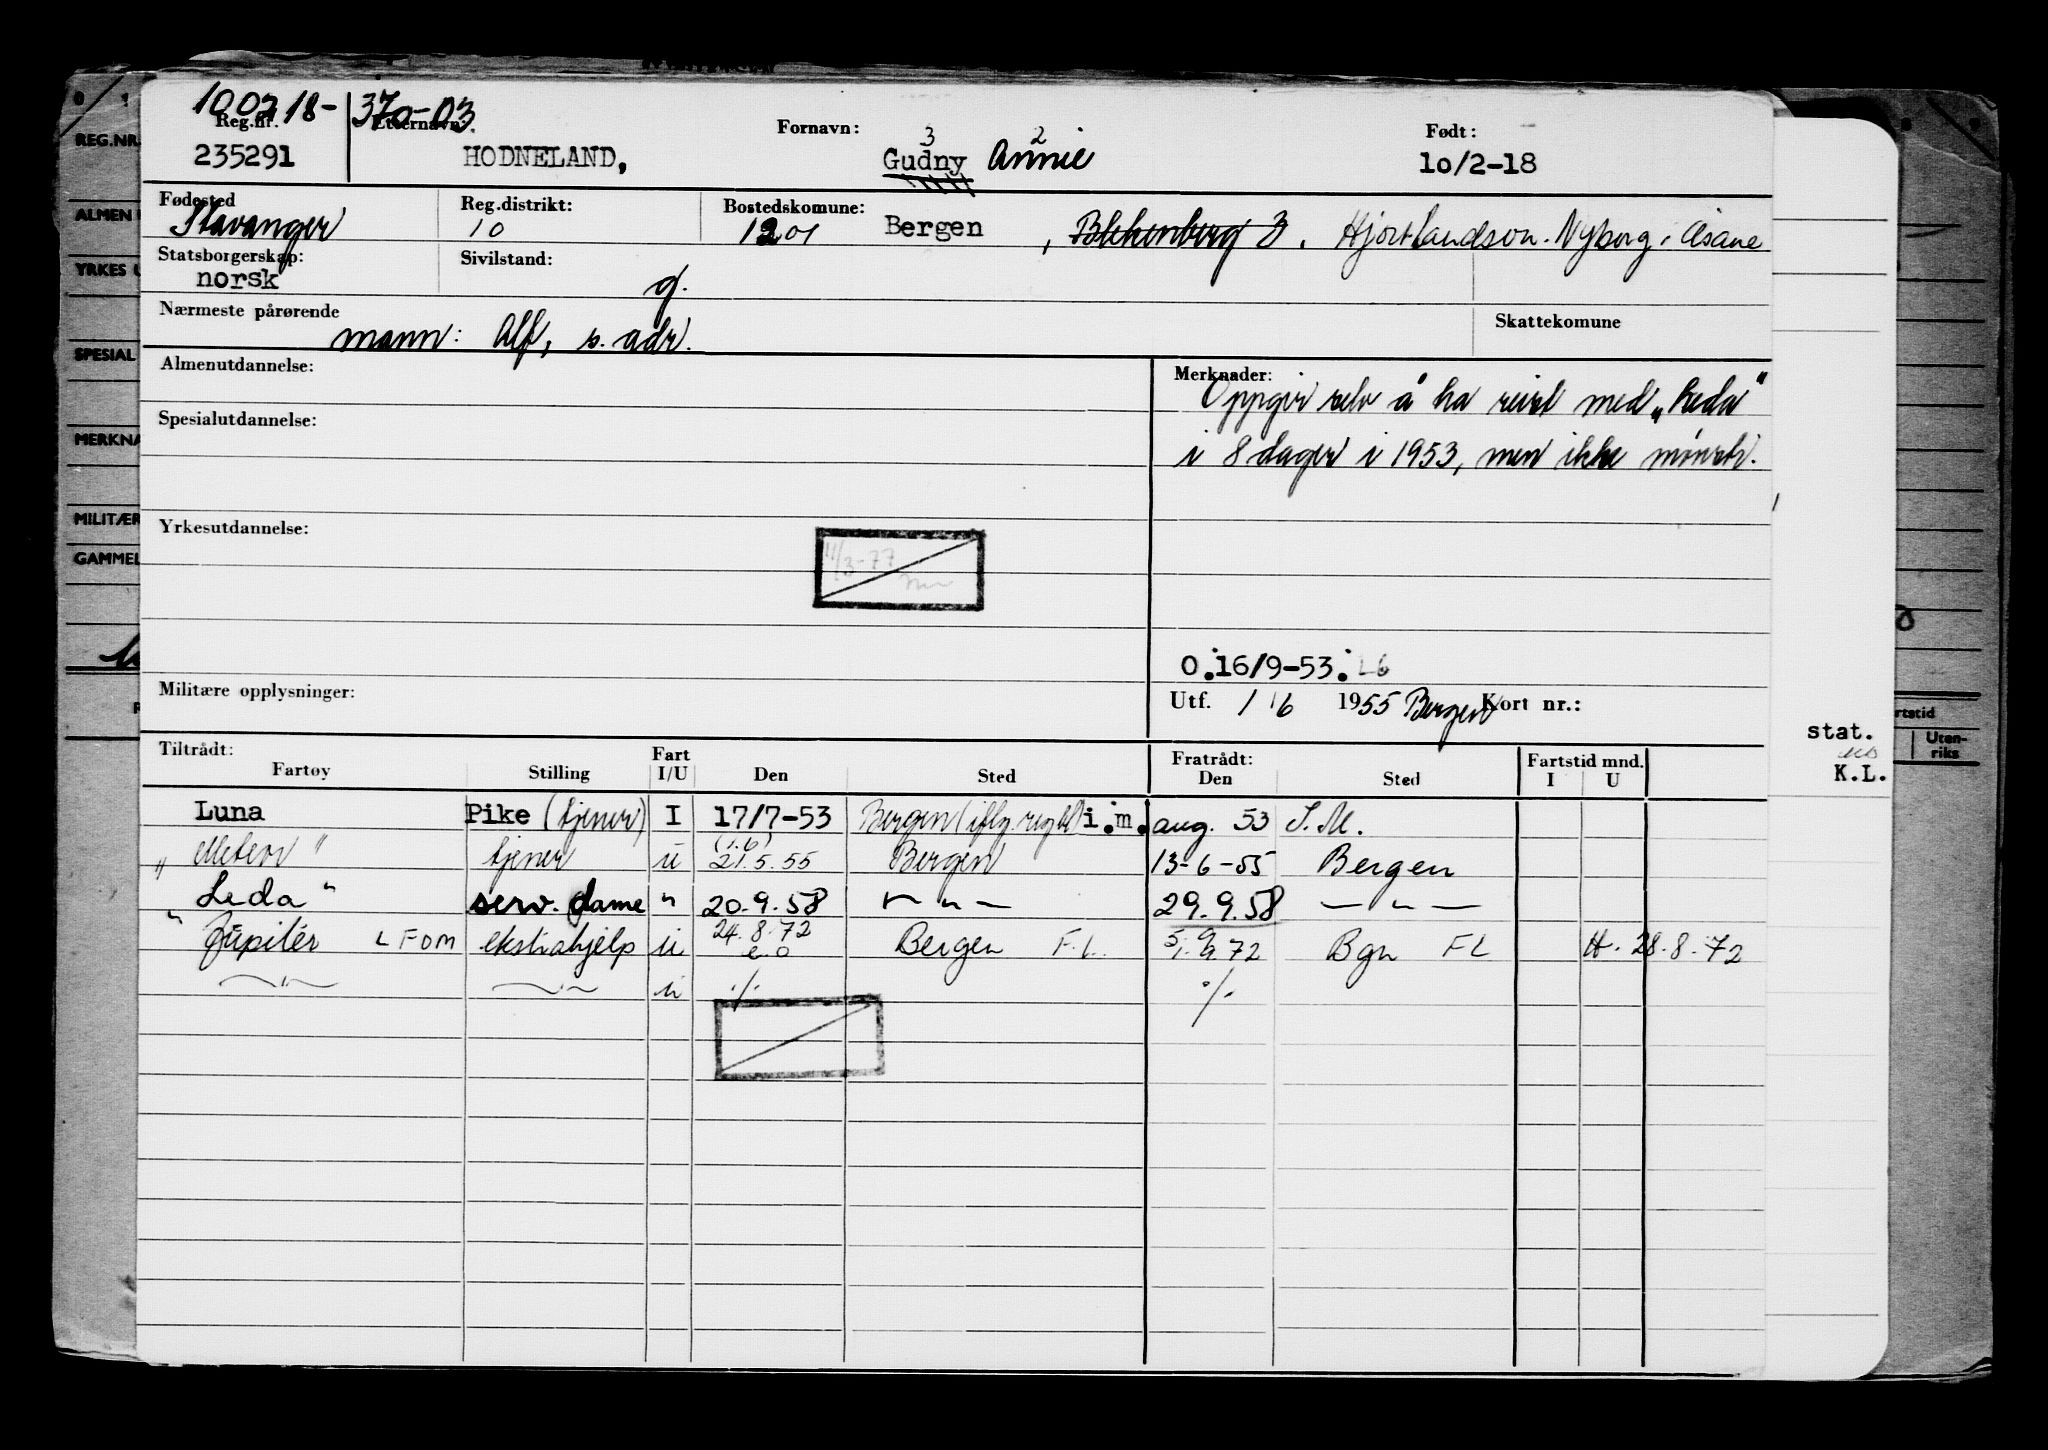 100218-370-03
Reg.nr. Etternavn: Fornavn: 3 2 Født:
235291 HODNELAND, Gudny Annie 10/2-18
Fødested Reg.distrikt: Bostedskomune:
Stavanger 10 1201 Bergen , Blekenberg 3. Hjortlandsson. Nyborg i Åsane
Statsborgerskap: Sivilstand:
norsk g.
Nærmeste pårørende Skattekomune
mann: Alf, s. adr.
Almenutdannelse: Merknader:
Oppgir selv å ha reist med "Leda"
Spesialutdannelse:
i 8 dager i 1953, men ikke mønstr.
Yrkesutdannelse:
11/3-77
O.16/9-53. L6
Militære opplysninger: Utf. 1/6 1955 Bergen Kort nr.:
Tiltrådt: Fart Fratrådt: Fartstid mnd.
Fartøy Stilling I/U Den Sted Den Sted I U
Luna Pike (tjener) I 17/7-53 Bergen (iflg. regbl) i.m. aug. 53 S.M.
" Meteor " tjener u (1.6) 21.5.55 Bergen 13-6-55 Bergen
Leda " serv. dame " 20.9.58 — " — 29.9.58 — " —
" Jupiter LFOM ekstrahjelp u 24.8.72 e.o Bergen F.L. 5.9.72 Bgn FL H. 28.8.72
— " — — " — u ./. ./.
REG.NR.
ALMEN
YRKES
SPESIAL
MERKNA
MILITÆR
GAMMEL
stat.
K.L.
rtstid
Uten-
riks